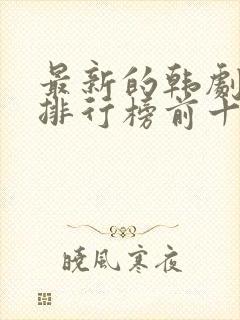 最新的韩劇
排行榜前十
曉風寒夜